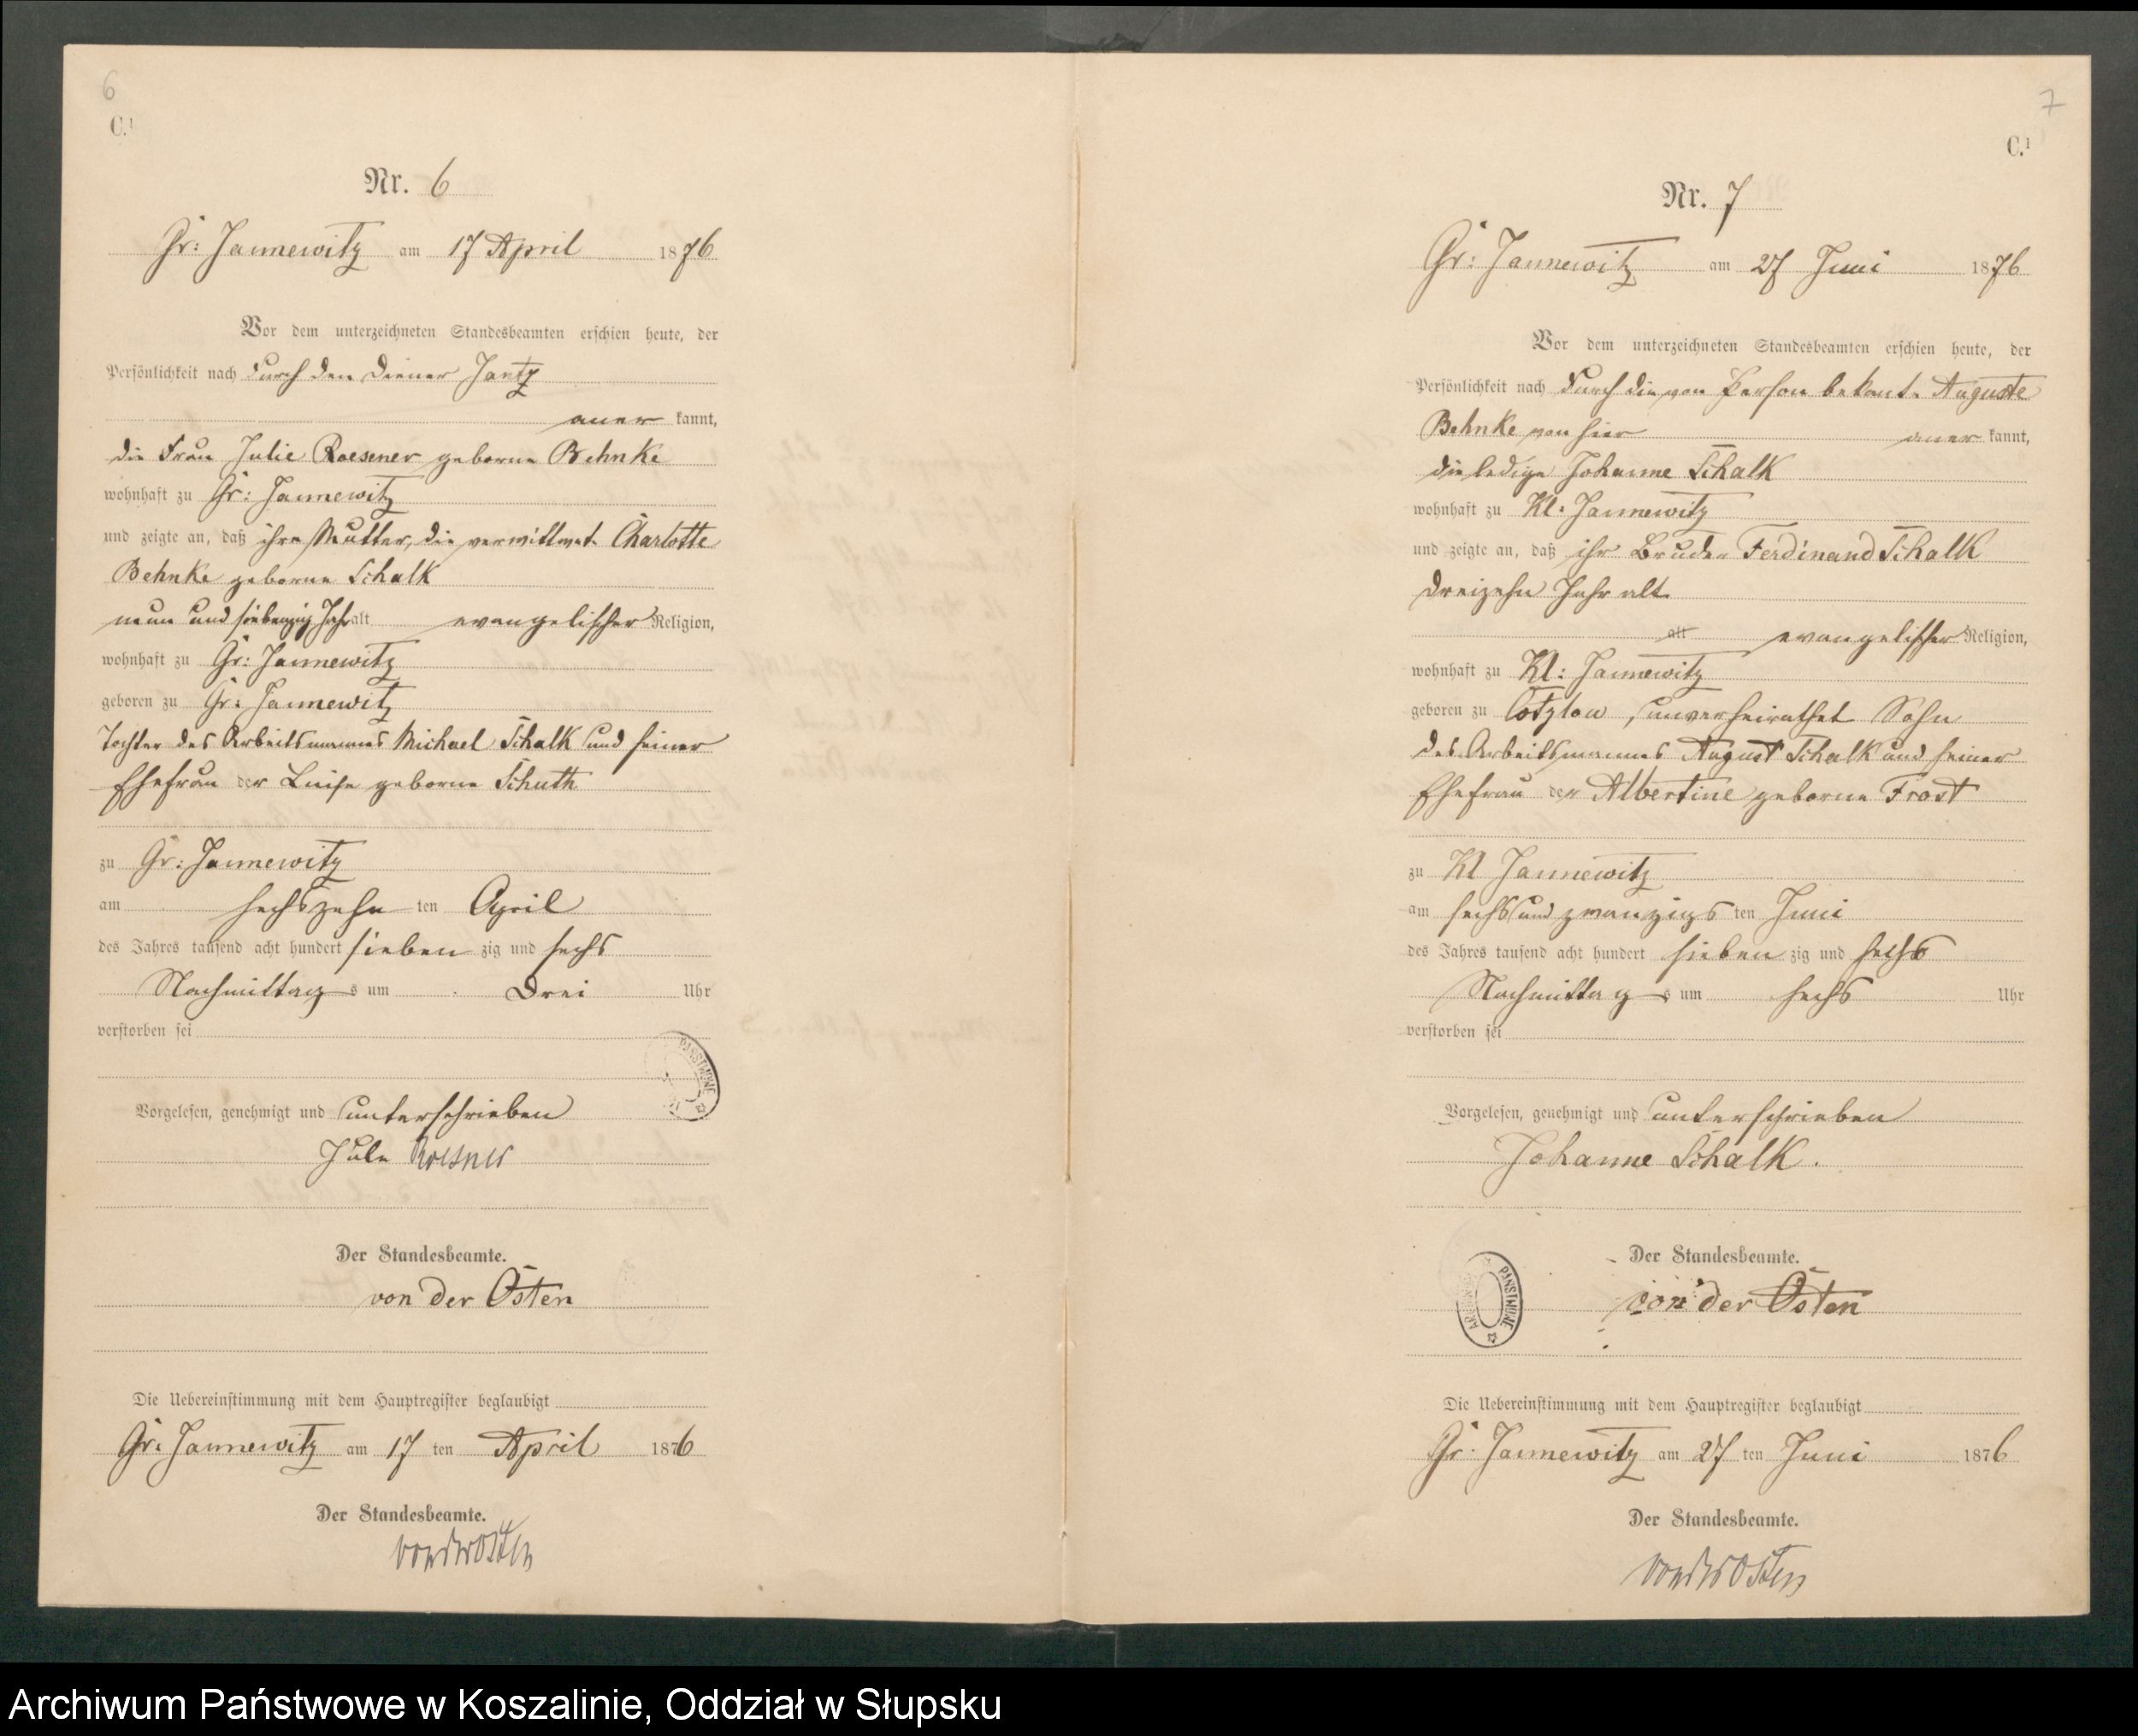 6
C.¹
Nr. 6
Gr: Jannewitz am 17 April 1876
Vor dem unterzeichneten Standesbeamten erschien heute, der
Persönlichkeit nach durch den Diener Jantz
aner kannt,
die Frau Julie Roesener geborne Behnke
wohnhaft zu Gr: Jannewitz
und zeigte an, daß ihre Mutter, die verwittwete Charlotte
Behnke geborne Schalk
neun und siebenzig Jahr alt evangelischer Religion,
wohnhaft zu Gr: Jannewitz
geboren zu Gr: Jannewitz
Tochter des Arbeitsmannes Michael Schalk und seiner
Ehefrau der Luise geborne Schuth
zu Gr: Jannewitz
am sechszehn ten April
des Jahres tausend acht hundert sieben zig und sechs
Nachmittag s um Drei Uhr
verstorben sei
PAŃSTWOWE
Vorgelesen, genehmigt und unterschrieben
Jule Roesner
Der Standesbeamte.
von der Osten
Die Uebereinstimmung mit dem Hauptregister beglaubigt
Gr. Jannewitz am 17 ten April 1876
Der Standesbeamte.
von der Osten
7
C.¹
Nr. 7
Gr: Jannewitz am 27 Juni 1876
Vor dem unterzeichneten Standesbeamten erschien heute, der
Persönlichkeit nach durch die von Person bekante Auguste
Behnke von hier aner kannt,
die ledige Johanne Schalk
wohnhaft zu Kl: Jannewitz
und zeigte an, daß ihr Bruder Ferdinand Schalk
dreizehn Jahr alt
alt evangelischer Religion,
wohnhaft zu Kl: Jannewitz
geboren zu Cotzlow, unverheirathet Sohn
des Arbeitsmannes August Schalk und seiner
Ehefrau der Albertine geborne Frost
zu Kl Jannewitz
am sechs und zwanzigs ten Juni
des Jahres tausend acht hundert sieben zig und sechs
Nachmittag s um sechs Uhr
verstorben sei
Vorgelesen, genehmigt und unterschrieben
Johanne Schalk.
Der Standesbeamte.
von der Osten
PAŃSTWOWE
Die Uebereinstimmung mit dem Hauptregister beglaubigt
Gr. Jannewitz am 27 ten Juni 1876
Der Standesbeamte.
von der Osten
Archiwum Państwowe w Koszalinie, Oddział w Słupsku